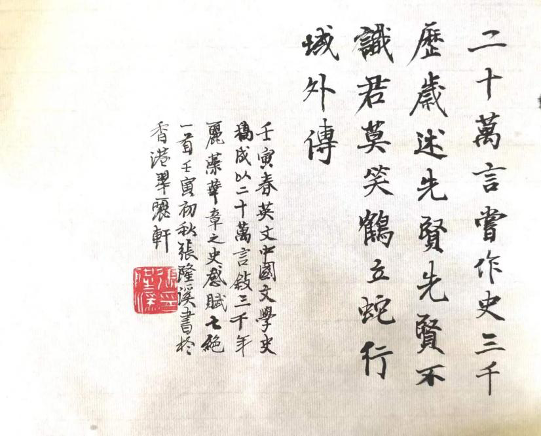 二十萬言嘗作史三千
歷歲述先賢先賢不
識君莫笑鶴立蛇行
域外傳
壬寅春英文中國文學史
稿成以二十萬言敘三千年
麗藻華章之史感賦七絕
一首壬寅初秋張隆溪書於
香港翠麗軒